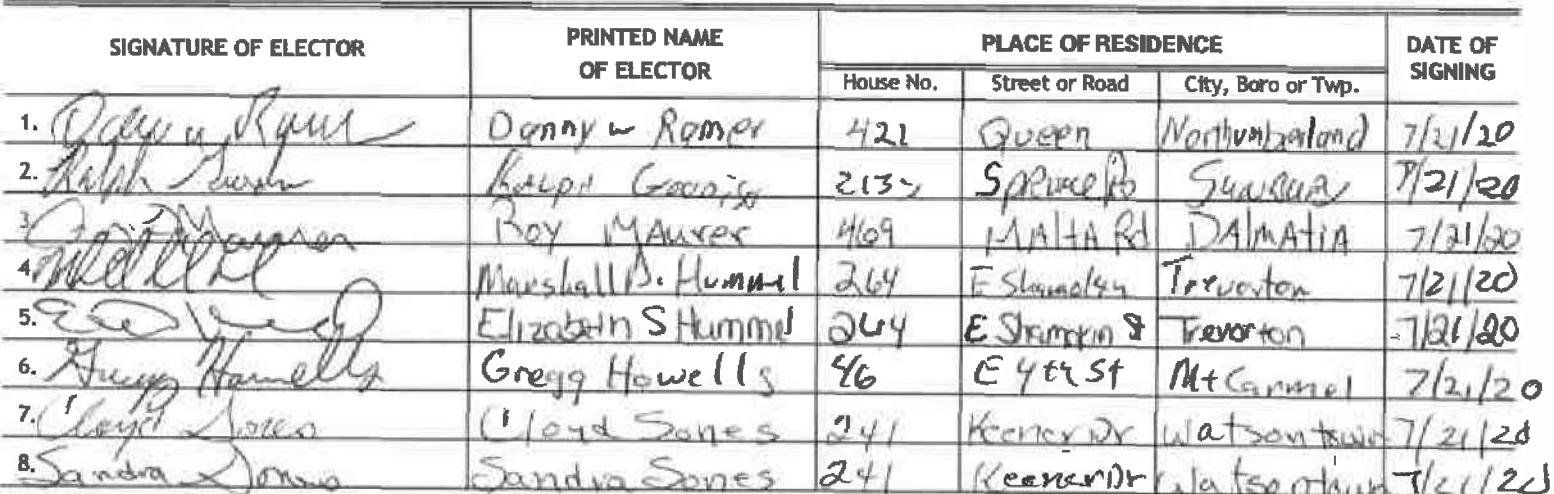 SIGNATURE OF ELECTOR PRINTED NAME OF ELECTOR PLACE OF RESIDENCE DATE OF SIGNING
House No. Street or Road City, Boro or Twp.
1. Danny W Ramer 421 Queen Northumberland 7/21/20
2. Ralph Ralph 213 Spruce 7/21/20
3. Maurer Roy MAurer 469 MAltA Rd DAlmAtiA 7/21/20
4. Marshall D. Hummel 264 E Shamokin Trevorton 7/21/20
5. Elizabeth S Hummel 264 E Shamokin St Trevorton 7/21/20
6. Gregg Howells Gregg Howells 46 E 4th St Mt Carmel 7/21/20
7. Cloyd Sones Cloyd Sones 241 Keener Dr Watsontown 7/21/20
8. Sandra Sones Sandra Sones 241 Keener Dr Watsontown 7/21/20